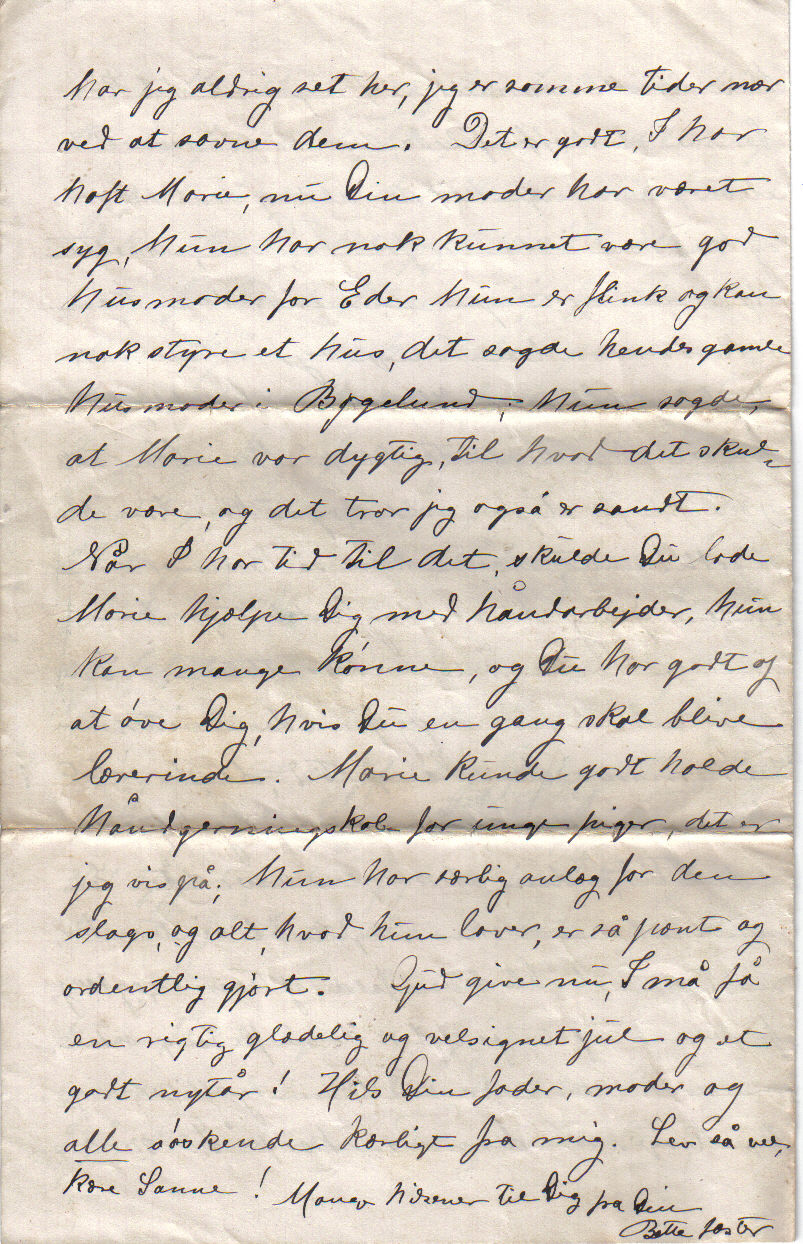 har jeg aldrig set her, jeg er somme tider nær
ved at savne dem. Det er godt, I har
haft Marie, nu Din moder har været
syg, hun har nok kunnet være god
husmoder for Eder hun er flink og kan
nok styre et hus, det sagde hendes gamle
husmoder i Bøgelund; hun sagde,
at Marie var dygtig, til hvad det skul-
de være, og det tror jeg også er sandt.
Når I har tid til det, skulde Du lade
Marie hjælpe Dig med håndarbejder, hun
kan mange kønne, og Du har godt af
at øve Dig, hvis Du en gang skal blive
lærerinde. Marie kunde godt holde
håndgerningskole for unge piger, det er
jeg vis på; hun har særlig anlæg for den
slags, og alt, hvad hun laver, er så pænt og
ordentlig gjort. Gud give nu, I må få
en rigtig glædelig og velsignet jul og et
godt nytår! Hils Din fader, moder og
alle søskende kærligt fra mig. Lev så vel,
kære Sanne! Mange hilsener til Dig fra Din
Bette faster